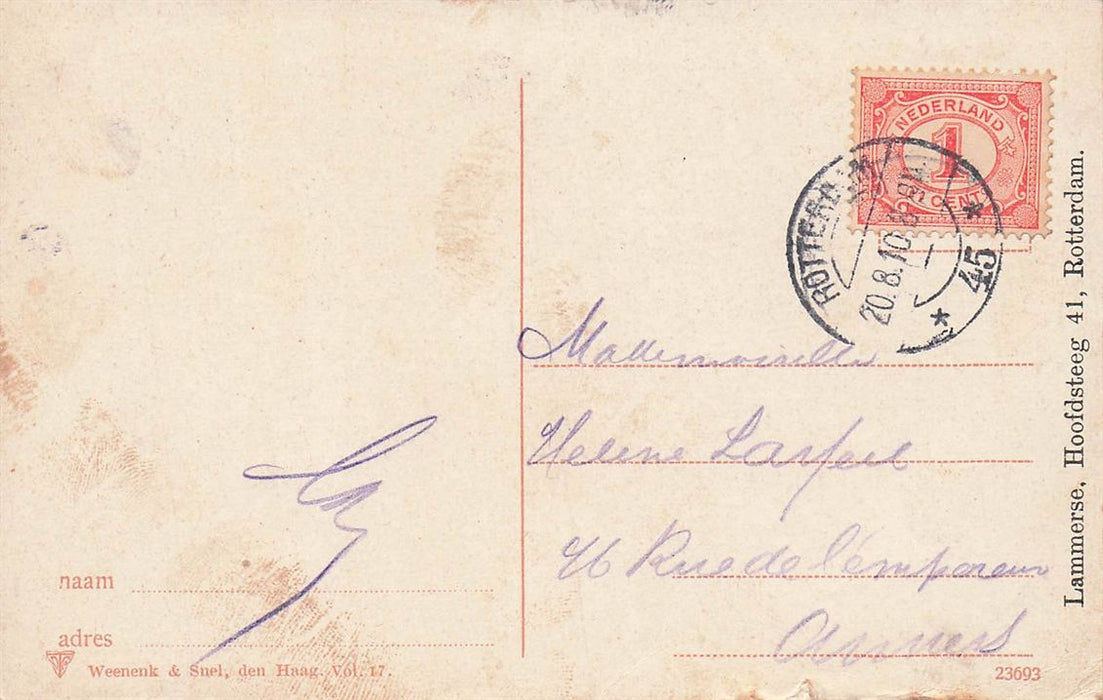 NEDERLAND
1
CENT
ROTTERDAM
20.8.10
* 45 *
Mademoiselle
Helene
Rue de l'empereur
Anvers
naam
adres
Weenenk & Snel, den Haag. Vol. 17.
23693
Lammerse, Hoofdsteeg 41, Rotterdam.